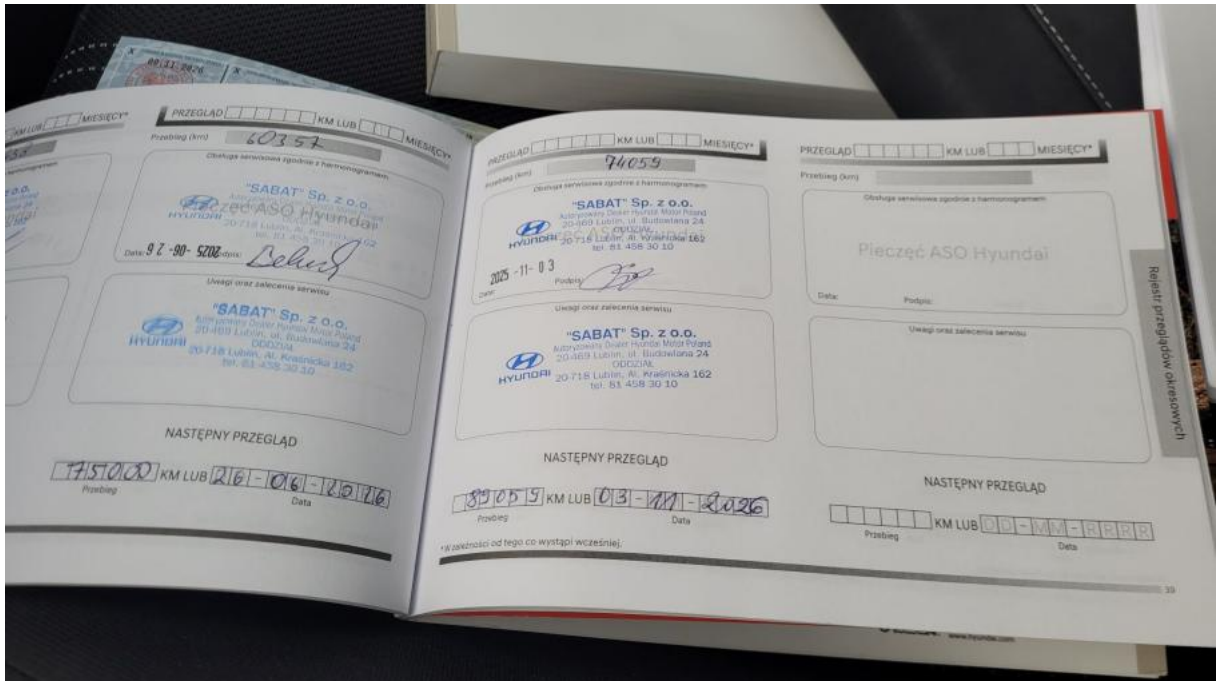 09.11.2026
KM LUB MIESIĘCY*
PRZEGLĄD KM LUB MIESIĘCY*
Przebieg (km) 60357
Obsługa serwisowa zgodnie z harmonogramem
"SABAT" Sp. z o.o.
Pieczęć ASO Hyundai
HYUNDAI
20-718 Lublin, Al. Kraśnicka 162
tel. 81 458 30 10
Data: 2025 -06- 26 Podpis:
Uwagi oraz zalecenia serwisu
"SABAT" Sp. z o.o.
Autoryzowany Dealer Hyundai Motor Poland
20-469 Lublin, ul. Budowlana 24
ODDZIAŁ
HYUNDAI 20-718 Lublin, Al. Kraśnicka 162
tel. 81 458 30 10
NASTĘPNY PRZEGLĄD
75000 KM LUB 26-06-2026
Przebieg Data
PRZEGLĄD KM LUB MIESIĘCY*
Przebieg (km) 74059
Obsługa serwisowa zgodnie z harmonogramem
"SABAT" Sp. z o.o.
Autoryzowany Dealer Hyundai Motor Poland
20-469 Lublin, ul. Budowlana 24
ODDZIAŁ
HYUNDAI 20-718 Lublin, Al. Kraśnicka 162
tel. 81 458 30 10
2025 -11- 03
Data: Podpis:
Uwagi oraz zalecenia serwisu
"SABAT" Sp. z o.o.
Autoryzowany Dealer Hyundai Motor Poland
20-469 Lublin, ul. Budowlana 24
ODDZIAŁ
HYUNDAI 20-718 Lublin, Al. Kraśnicka 162
tel. 81 458 30 10
NASTĘPNY PRZEGLĄD
89059 KM LUB 03-11-2026
Przebieg Data
*W zależności od tego co wystąpi wcześniej.
PRZEGLĄD KM LUB MIESIĘCY*
Przebieg (km)
Obsługa serwisowa zgodnie z harmonogramem
Pieczęć ASO Hyundai
Data: Podpis:
Uwagi oraz zalecenia serwisu
NASTĘPNY PRZEGLĄD
KM LUB DD-MM-RRRR
Przebieg Data
39
Rejestr przeglądów okresowych
www.hyundai.com